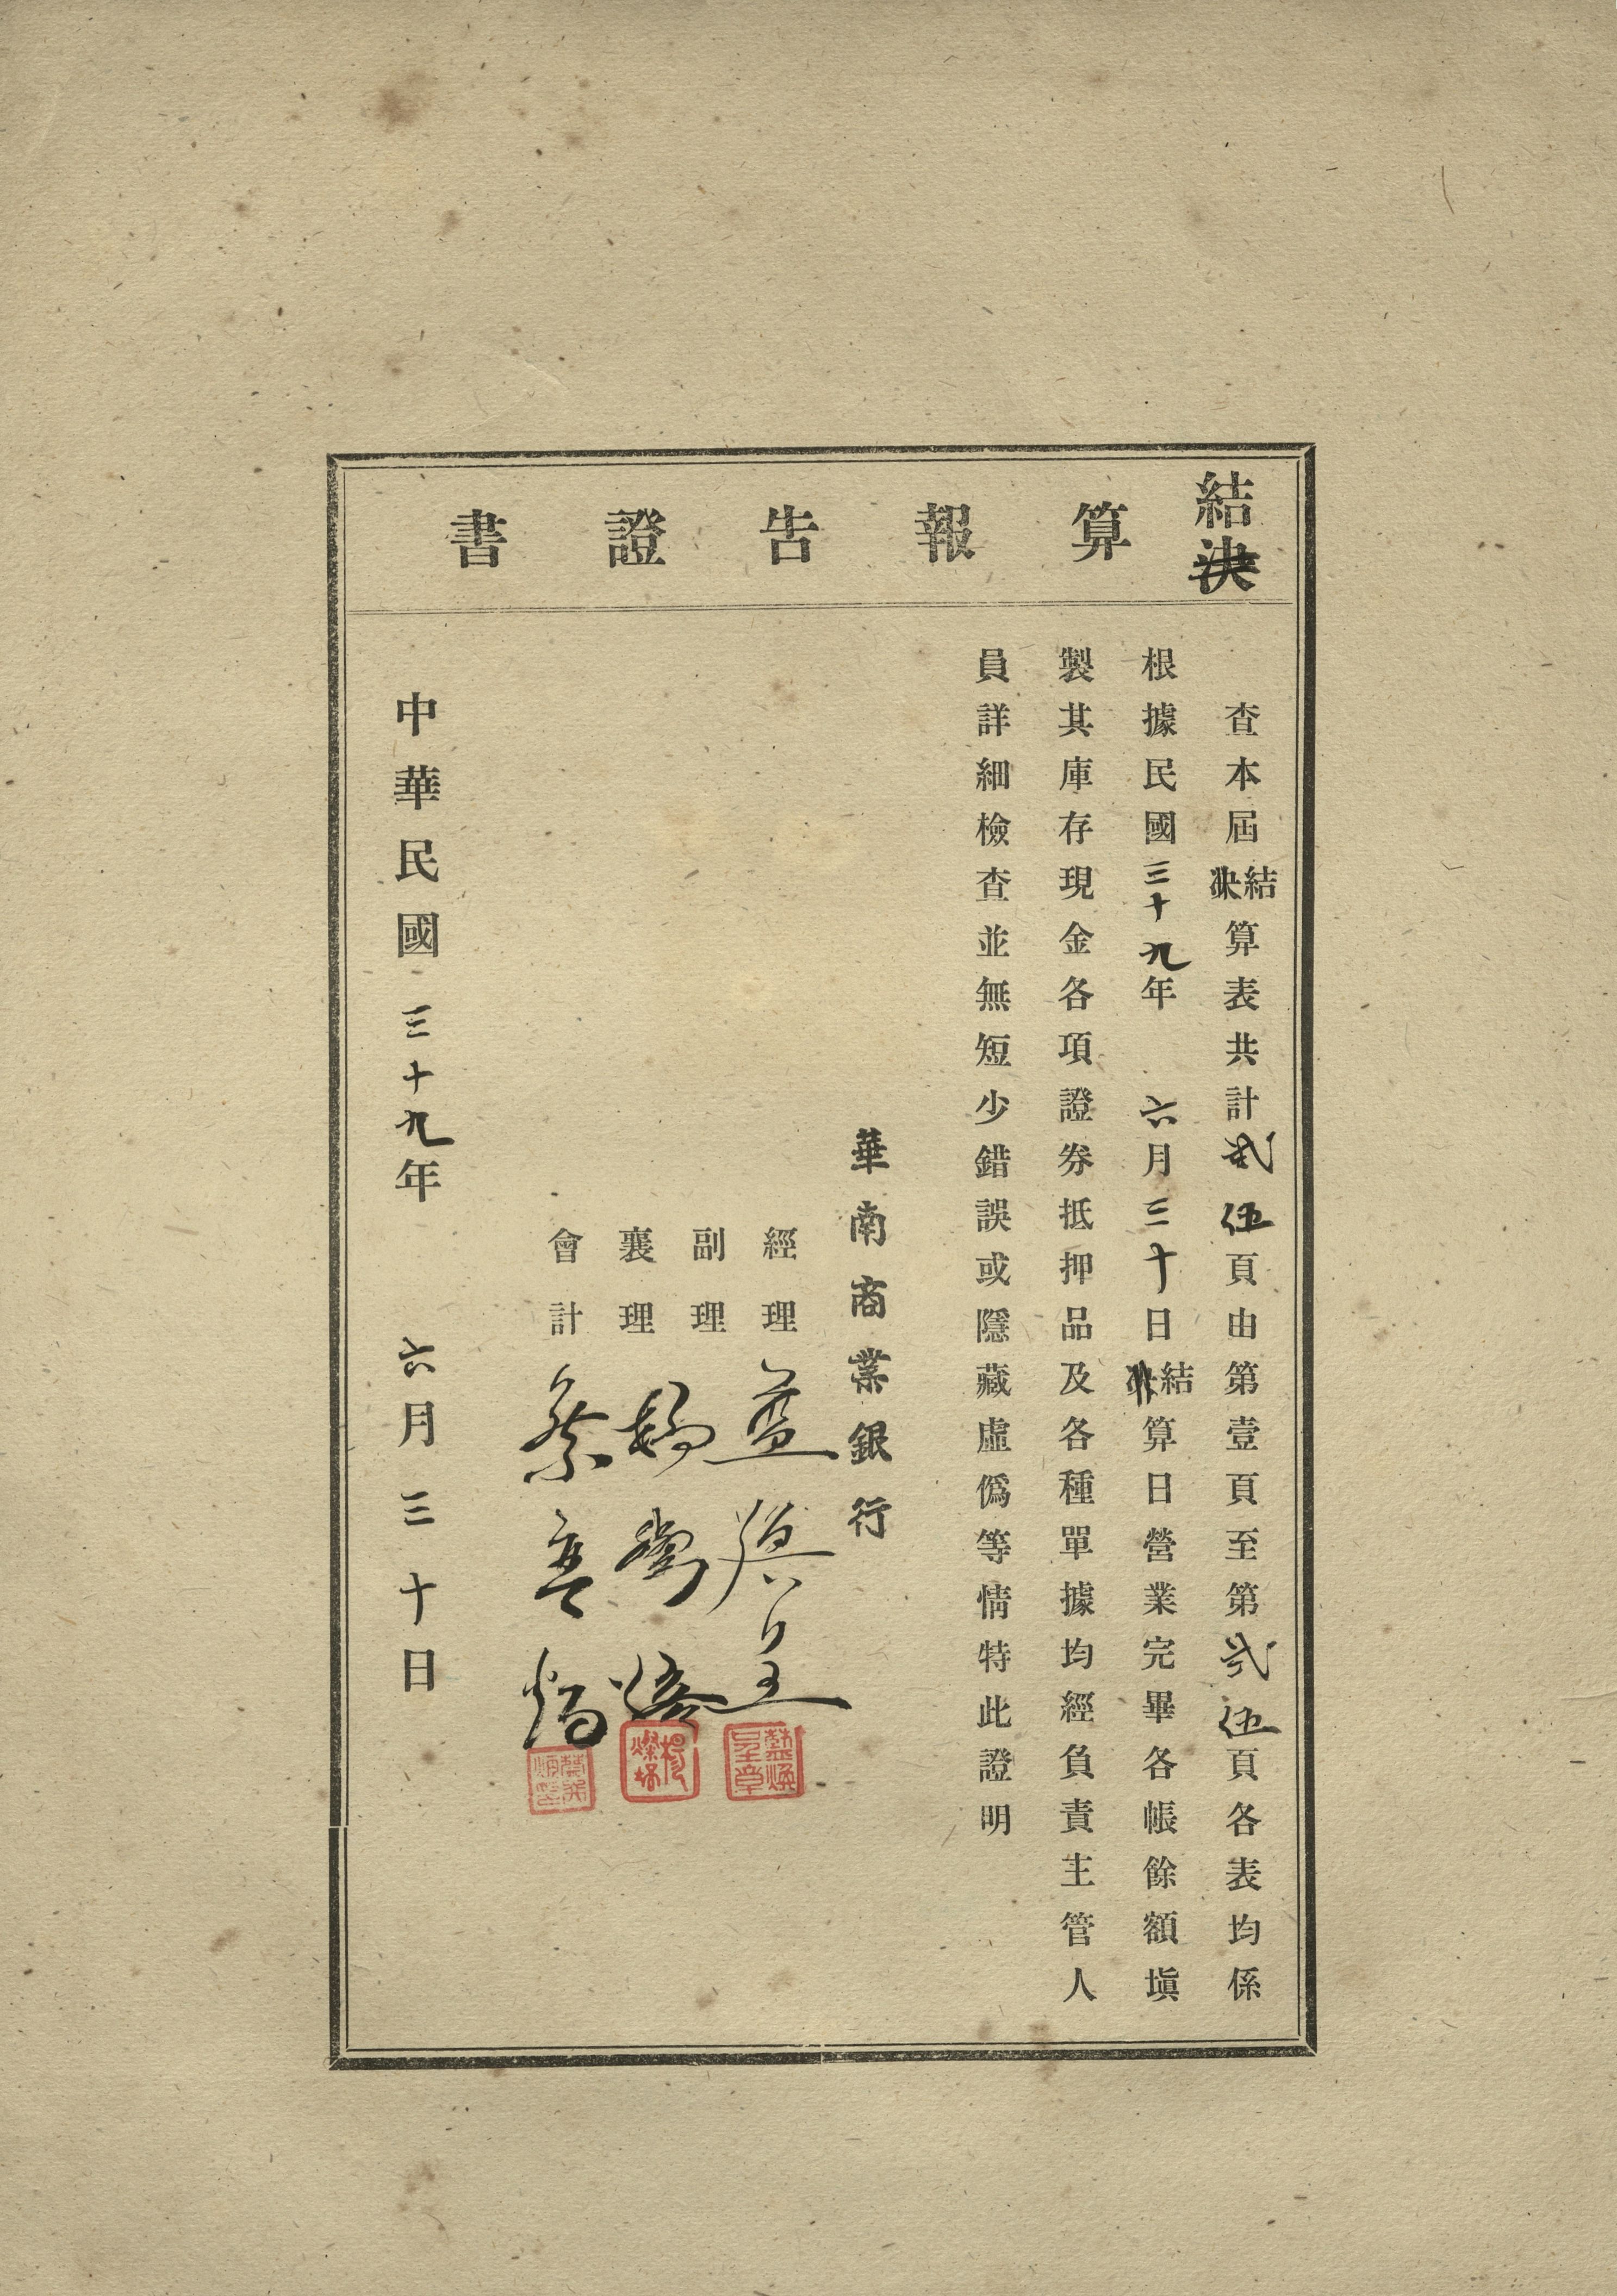 結決算報告證書
查本屆結決算表共計貳伍頁由第壹頁至第貳伍頁各表均係
根據民國三十九年 六月三十日結決算日營業完畢各帳餘額塡
製其庫存現金各項證券抵押品及各種單據均經負責主管人
員詳細檢查並無短少錯誤或隱藏虛僞等情特此證明
華南商業銀行
經理 藍煥呈
藍煥呈章
副理
襄理 楊
會計 蔡
中華民國三十九年 六月三十日